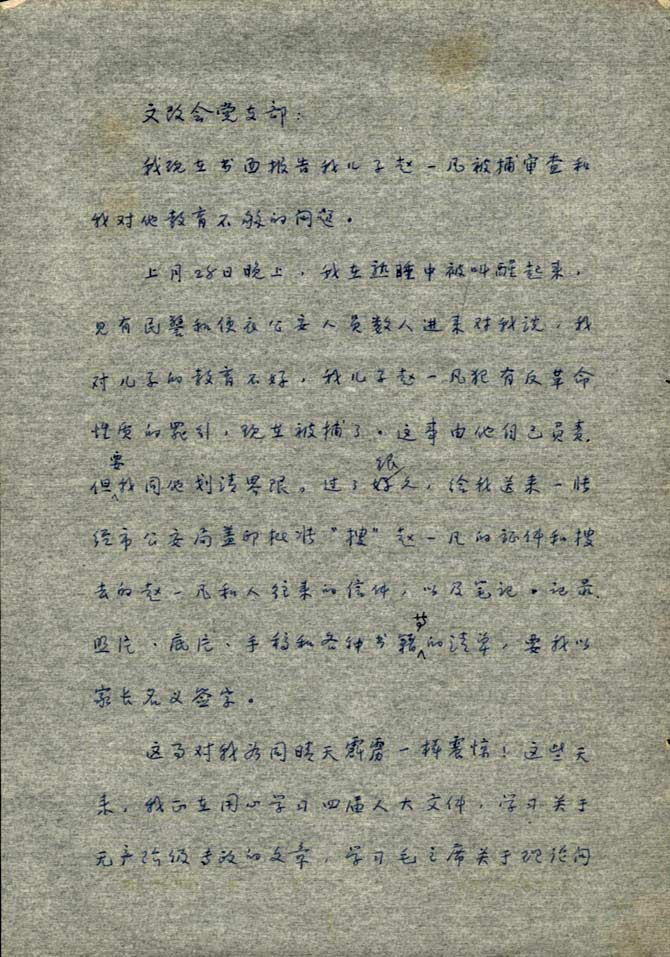 文改会党支部：
我现在书面报告我儿子赵一凡被捕审查和
我对他教育不够的问题。
上月28日晚上，我在熟睡中被叫醒起来，
见有民警和便衣公安人员数人进来对我说，我
对儿子的教育不好，我儿子赵一凡犯有反革命
性质的罪行，现在被捕了。这事由他自己负责，
但要我同他划清界限。过了很久，给我送来一张
经市公安局盖印批准“搜”赵一凡的证件和搜
去的赵一凡和人往来的信件，以及笔记、记录、
照片、底片、手稿和各种书籍等的清单，要我以
家长名义签字。
这事对我如同晴天霹雳一样震惊！这些天
来，我正在用心学习四届人大文件，学习关于
无产阶级专政的文章，学习毛主席关于理论问